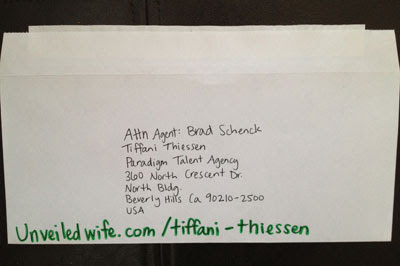 Attn Agent: Brad Schenck
Tiffani Thiessen
Paradigm Talent Agency
360 North Crescent Dr.
North Bldg.
Beverly Hills Ca 90210-2500
USA
Unveiledwife.com/tiffani-thiessen